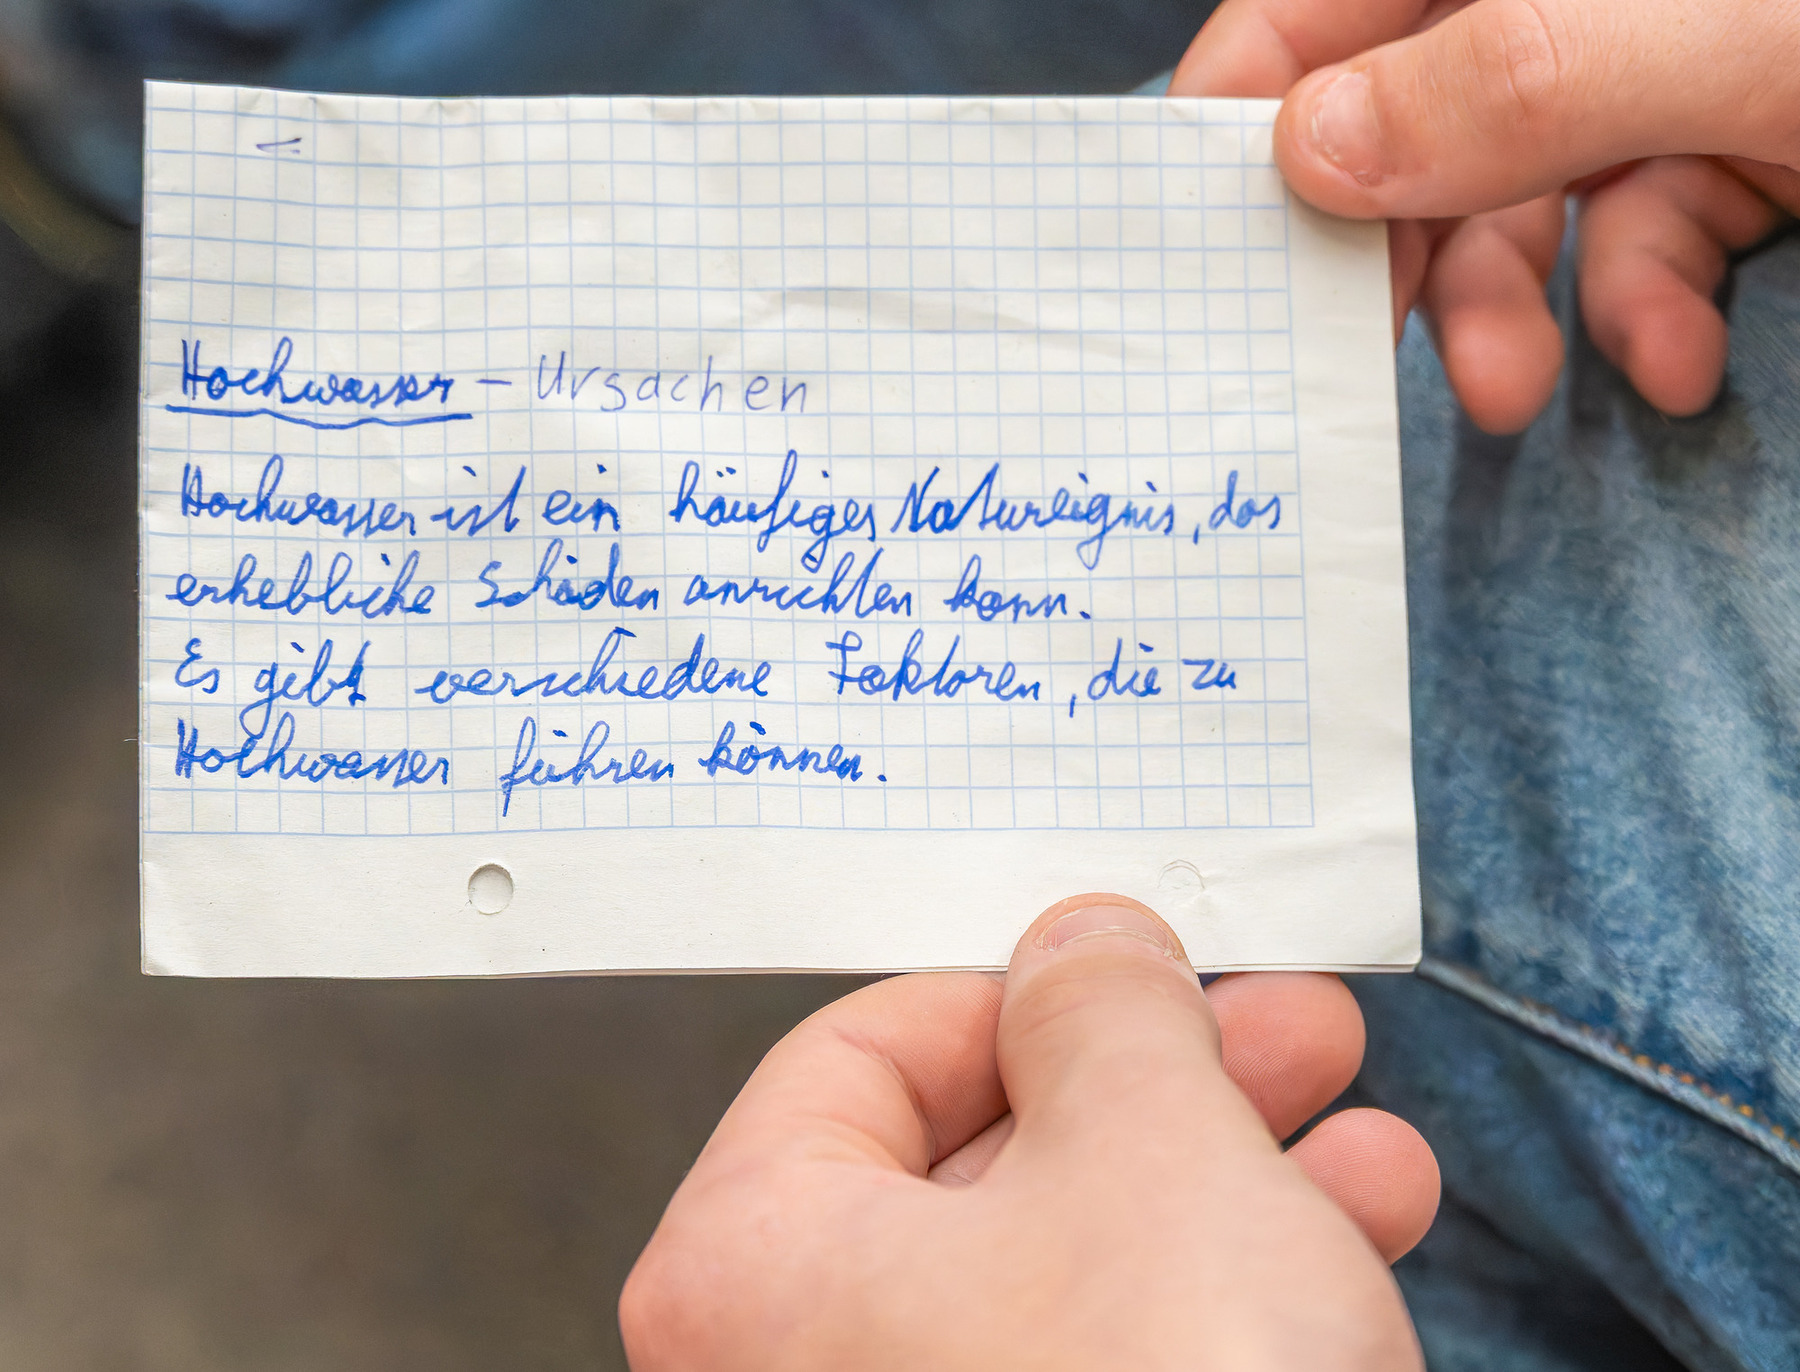 Hochwasser – Ursachen
Hochwasser ist ein häufiges Natureignis, das
erhebliche Schäden anrichten kann.
Es gibt verschiedene Faktoren, die zu
Hochwasser führen können.